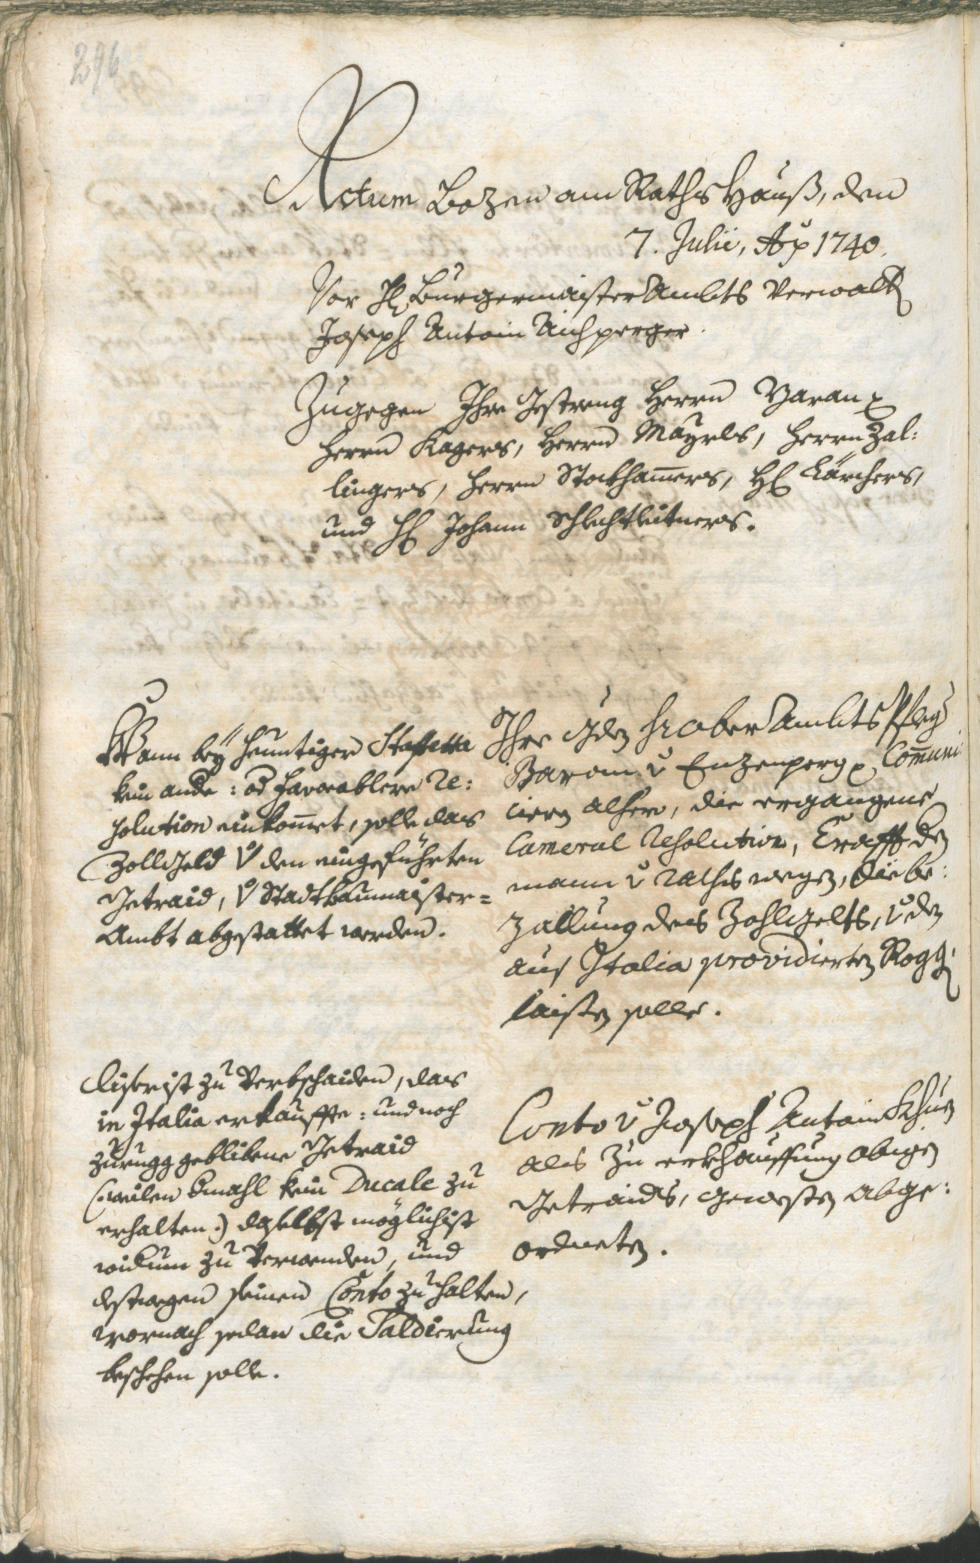 296
Actum Bozen am Raths Hauß, den
7. Julii, Ao 1740.
Vor Burgermaister Ambts Verwalt
Joseph Antoni Aichperger.
Zugegen Ihre Gestreng Herrn
Herrn Kagers, Herrn Mayrls, Herrn Zal:
lingers, Herrn Stockhamers, H Kärchers,
und H Johann Schlechtleitners.
Ihre Gdn H Ober Ambts Pfleg
Baron v Enzenperg Comuni
ciern alher, die ergangene
Cameral Resolution, Crafft den
mann v Raths wegen, die be:
zallung des Zohlgelts, v den
aus Italia providierten Rogg
laisten solle.
Wann bey heuntiger Staffetta
kein ande: od favorablere Re:
solution einkomet, solle das
Zollgeld v den eingeführten
Getraid, v Stadtbaumaister=
Ambt abgestattet werden.
Conto v Joseph Antoni
als zu erkhauffung obigen
Getraids, gewesten abge:
ordneten.
diser ist zu Verbschaiden, das
in Italia erkauffte: und noch
zurugg geblibene Getraid
(weilen kein Ducale zu
erhalten) daselbst möglichist
widum zu Verwenden, und
destwegen seinen Conto zu halten,
wornach sodan die Saldierung
beschehen solle.